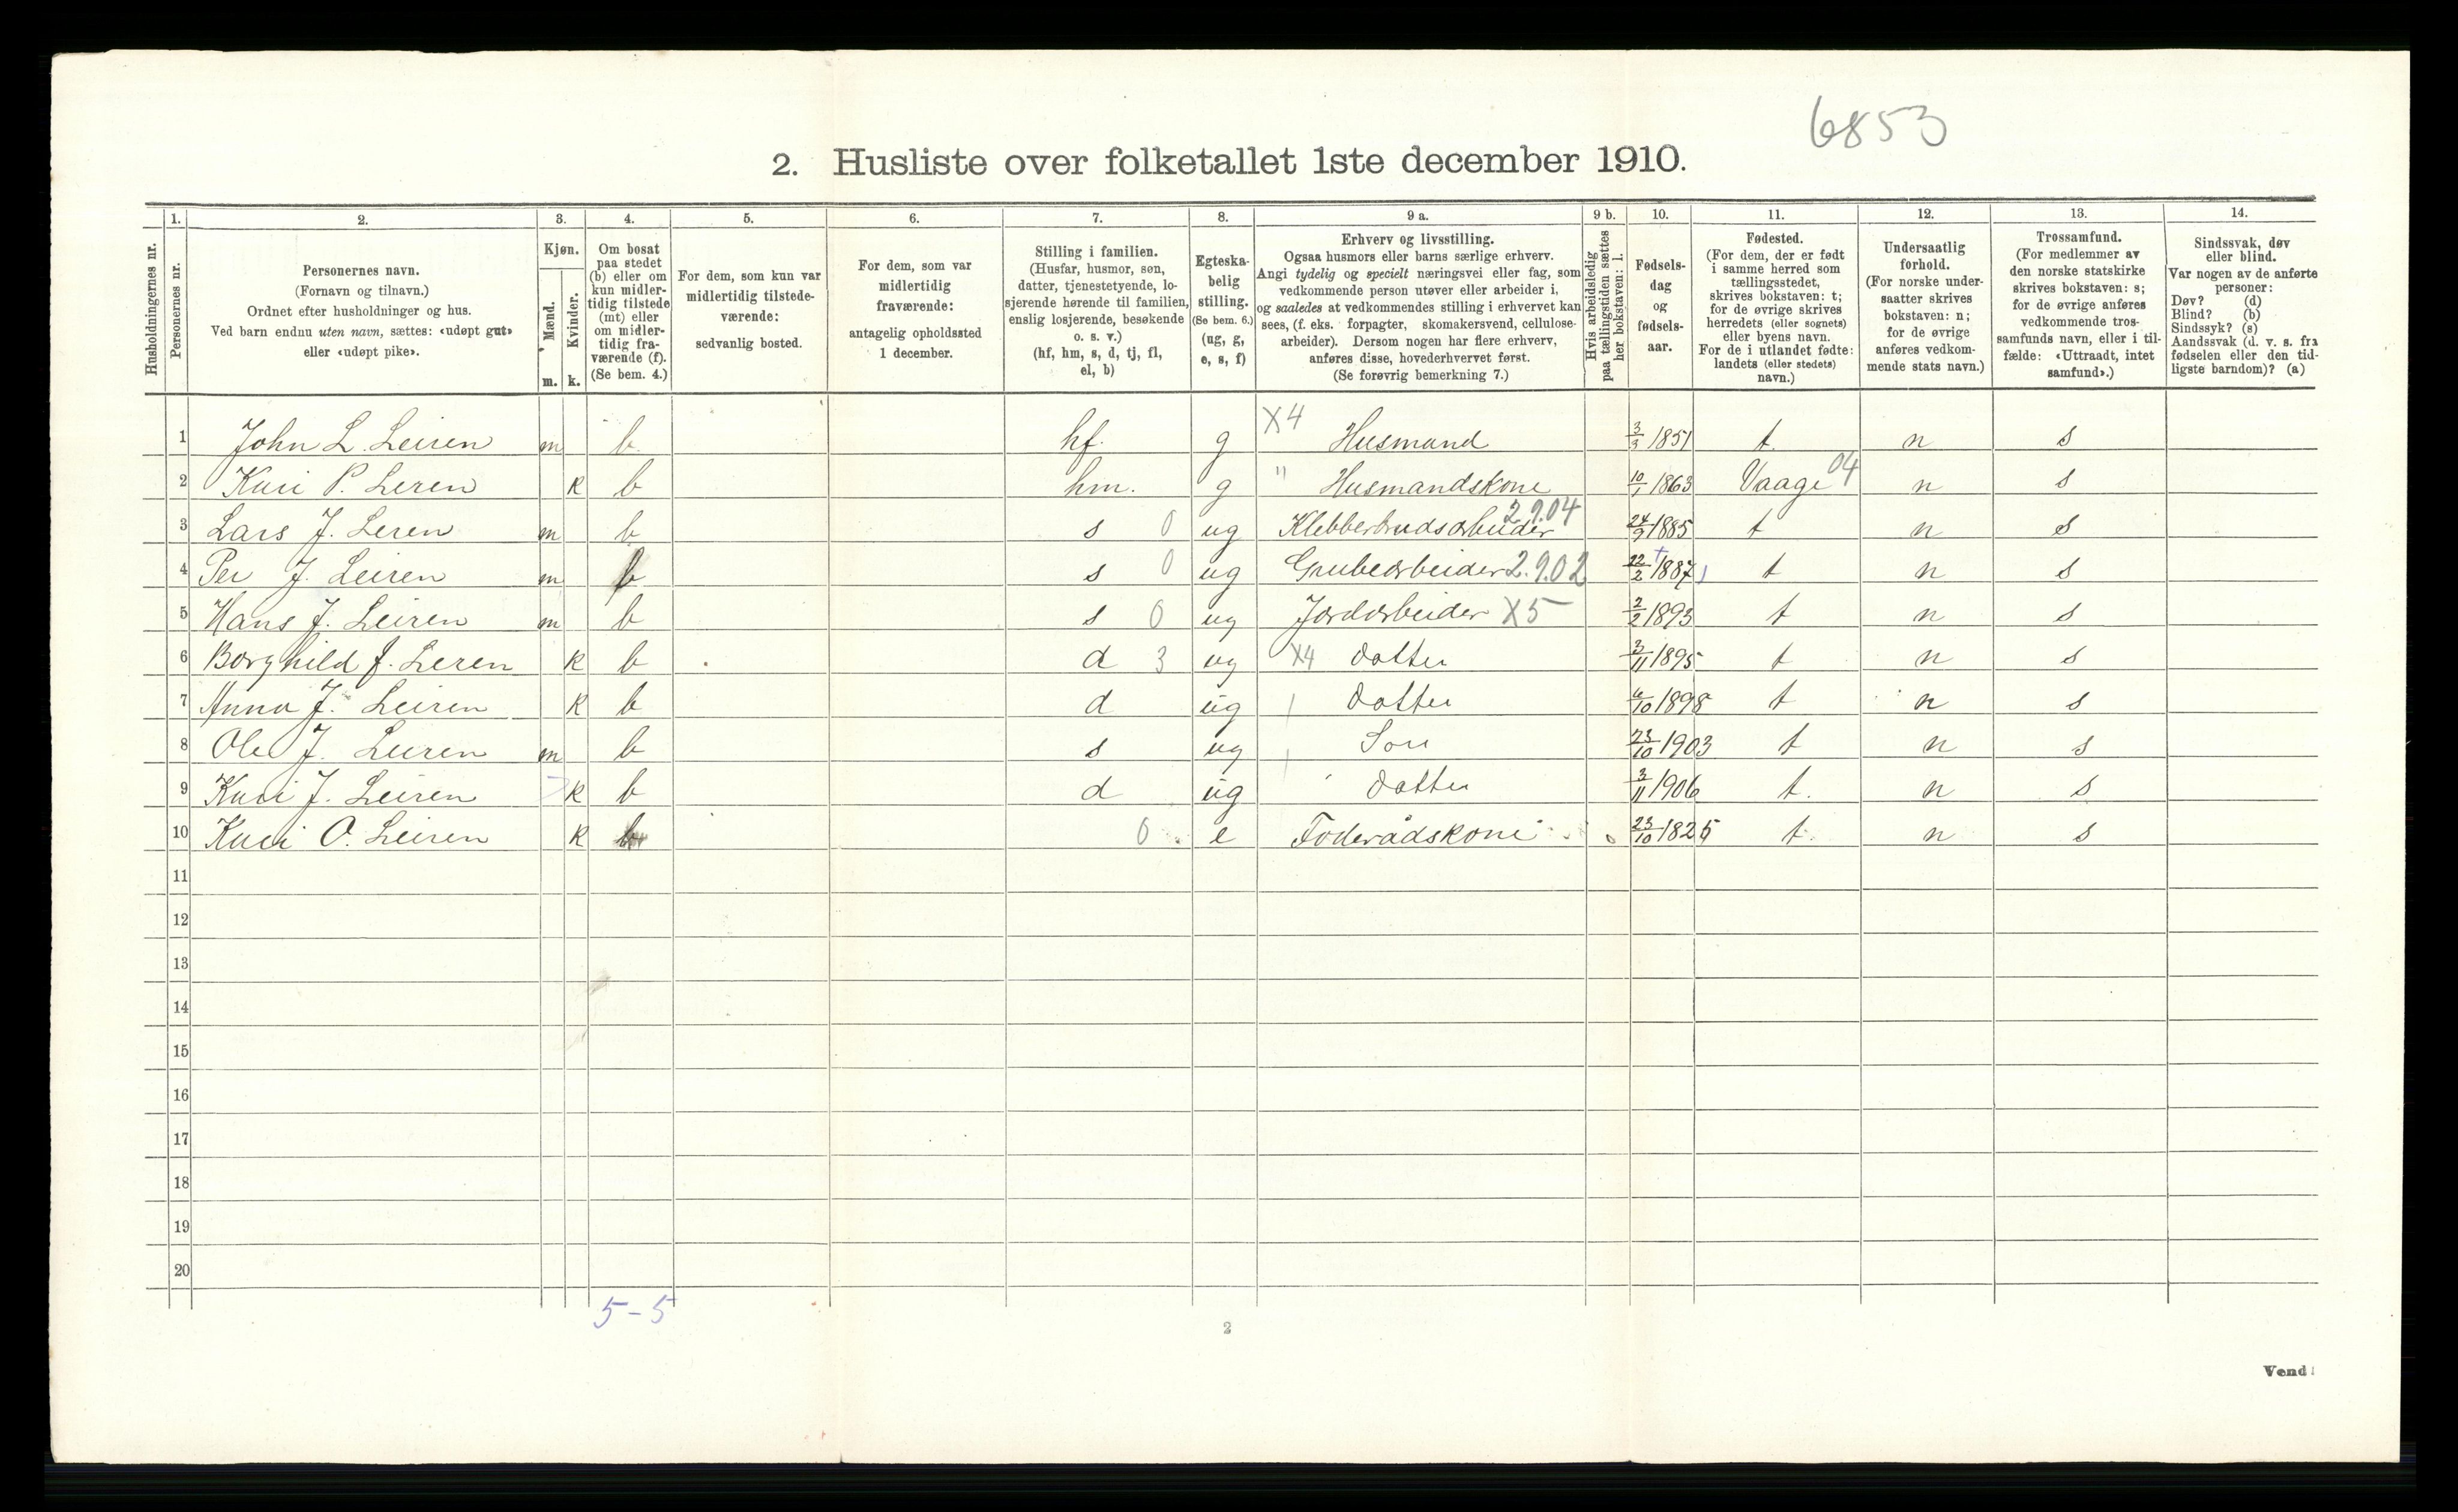 6853
2. Husliste over folketallet 1ste december 1910.
Husholdningernes nr.
1.
Personernes nr.
2.
Personernes navn.
(Fornavn og tilnavn.)
Ordnet efter husholdninger og hus.
Ved barn endnu uten navn, sættes: «udøpt gut»
eller «udøpt pike».
3.
Kjøn.
Mænd.
Kvinder.
m. k.
4.
Om bosat
paa stedet
(b) eller om
kun midler-
tidig tilstede
(mt) eller
om midler-
tidig fra-
værende (f).
(Se bem. 4.)
5.
For dem, som kun var
midlertidig tilstede-
værende:
sedvanlig bosted.
6.
For dem, som var
midlertidig
fraværende:
antagelig opholdssted
1 december.
7.
Stilling i familien.
(Husfar, husmor, søn,
datter, tjenestetyende, lo-
sjerende hørende til familien,
enslig losjerende, besøkende
o. s. v.)
(hf, hm, s, d, tj, fl,
el, b)
8.
Egteska-
belig
stilling.
(Se bem. 6.)
(ug, g,
e, s, f)
9 a.
Erhverv og livsstilling.
Ogsaa husmors eller barns særlige erhverv.
Angi tydelig og specielt næringsvei eller fag, som
vedkommende person utøver eller arbeider i,
og saaledes at vedkommendes stilling i erhvervet kan
sees, (f. eks. forpagter, skomakersvend, cellulose-
arbeider). Dersom nogen har flere erhverv,
anføres disse, hovederhvervet først.
(Se forøvrig bemerkning 7.)
9 b.
Hvis arbeidsledig
paa tællingstiden sættes
her bokstaven: l.
10.
Fødsels-
dag
og
fødsels-
aar.
11.
Fødested.
(For dem, der er født
i samme herred som
tællingsstedet,
skrives bokstaven: t;
for de øvrige skrives
herredets (eller sognets)
eller byens navn.
For de i utlandet fødte:
landets (eller stedets)
navn.)
12.
Undersaatlig
forhold.
(For norske under-
saatter skrives
bokstaven: n;
for de øvrige
anføres vedkom-
mende stats navn.)
13.
Trossamfund.
(For medlemmer av
den norske statskirke
skrives bokstaven: s;
for de øvrige anføres
vedkommende tros-
samfunds navn, eller i til-
fælde: «Uttraadt, intet
samfund».)
14.
Sindssvak, døv
eller blind.
Var nogen av de anførte
personer:
Døv? (d)
Blind? (b)
Sindssyk? (s)
Aandssvak (d. v. s. fra
fødselen eller den tid-
ligste barndom)? (a)
1 John L. Leiren m b hf. g X4 Husmand 3/3 1851 t. n s
2 Kari P. Leren k b hm. g " Husmandskone 10/1 1863 Vaage 04 n s
3 Lars J. Leren m b s 0 ug Klebberbrudsarbeider 2.9.04 24/9 1885 t n s
4 Per J. Leiren m b s 0 ug Grubearbeider 2.9.02 22/2 1887 t n s
5 Hans J. Leiren m b s 0 ug Jordarbeider X5 2/2 1893 t n s
6 Borghild J. Leren k b d 3 ug X4 Datter 3/11 1895 t n s
7 Anna J. Leiren k b d ug Datter 6/10 1898 t n s
8 Ole J. Leiren m b s ug Søn 23/10 1903 t n s
9 Kari J. Leiren k b d ug Datter 3/11 1906 t. n s
10 Kari O. Leiren k b 0 e Foderådskone 23/10 1825 t. n s
11
12
13
14
15
16
17
18
19
20
5-5
2
Vend!